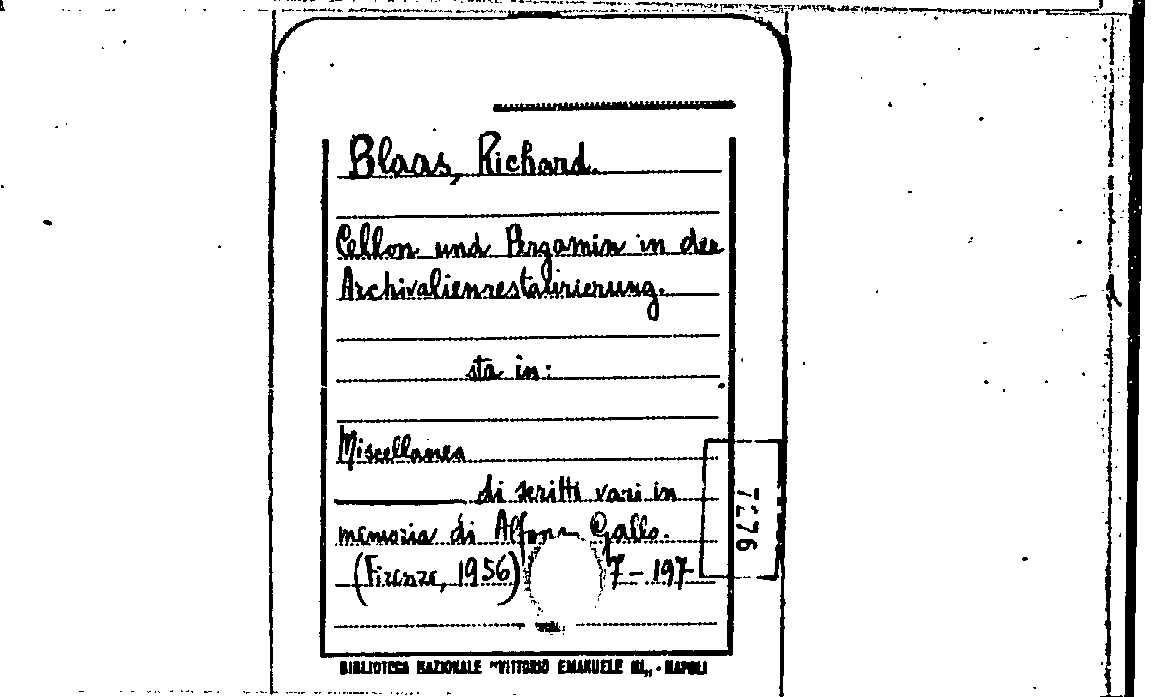 Blaas, Richard.
Cellon und Pergamin in der
Archivalienrestalirierung.
sta in:
Miscellanea
di scritti vari in
memoria di Alfon Gallo.
(Firenze, 1956) 7-197
BIBLIOTECA NAZIONALE "VITTORIO EMANUELE III„ - NAPOLI